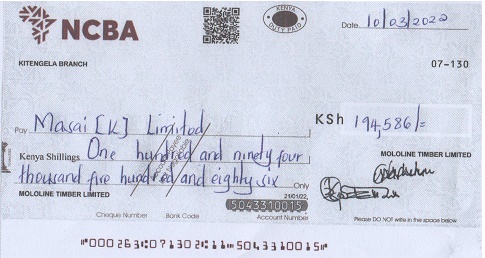 NCBA
KENYA
DUTY PAID
Date 10/03/2022
KITENGELA BRANCH
07-130
Pay Masai [K] Limited
KSh 194,586/=
Kenya Shillings One hundred and ninety four
thousand five hundred and eighty six Only
MOLOLINE TIMBER LIMITED
MOLOLINE TIMBER LIMITED
21/01/22
5043310015
Cheque Number Bank Code Account Number
Please DO NOT write in the space below
"000263:071302:11"5043310015"